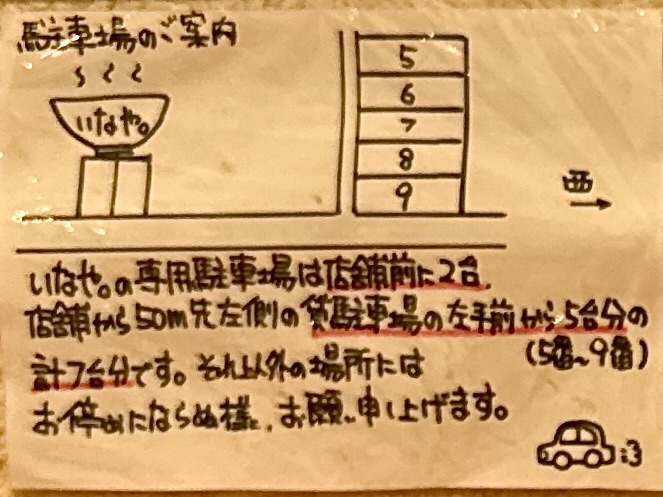 駐車場のご案内
いなや。
5
6
7
8
9
西
いなや。の専用駐車場は店舗前に2台、
店舗から50m先左側の貸駐車場の左手前から5台分の
(5番~9番)
計7台分です。それ以外の場所には
お停めにならぬ様、お願い申し上げます。
:3